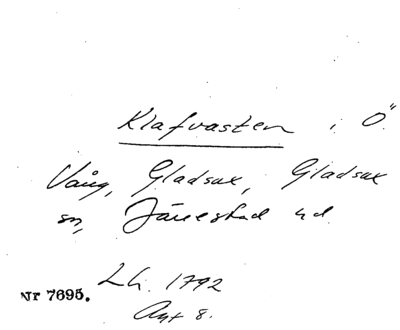 Klafvasten i Ö.
Vång, Gladsax, Gladsax
sn, Järrestad hd.
Lh. 1792
Nr 7695.
Akt 8.